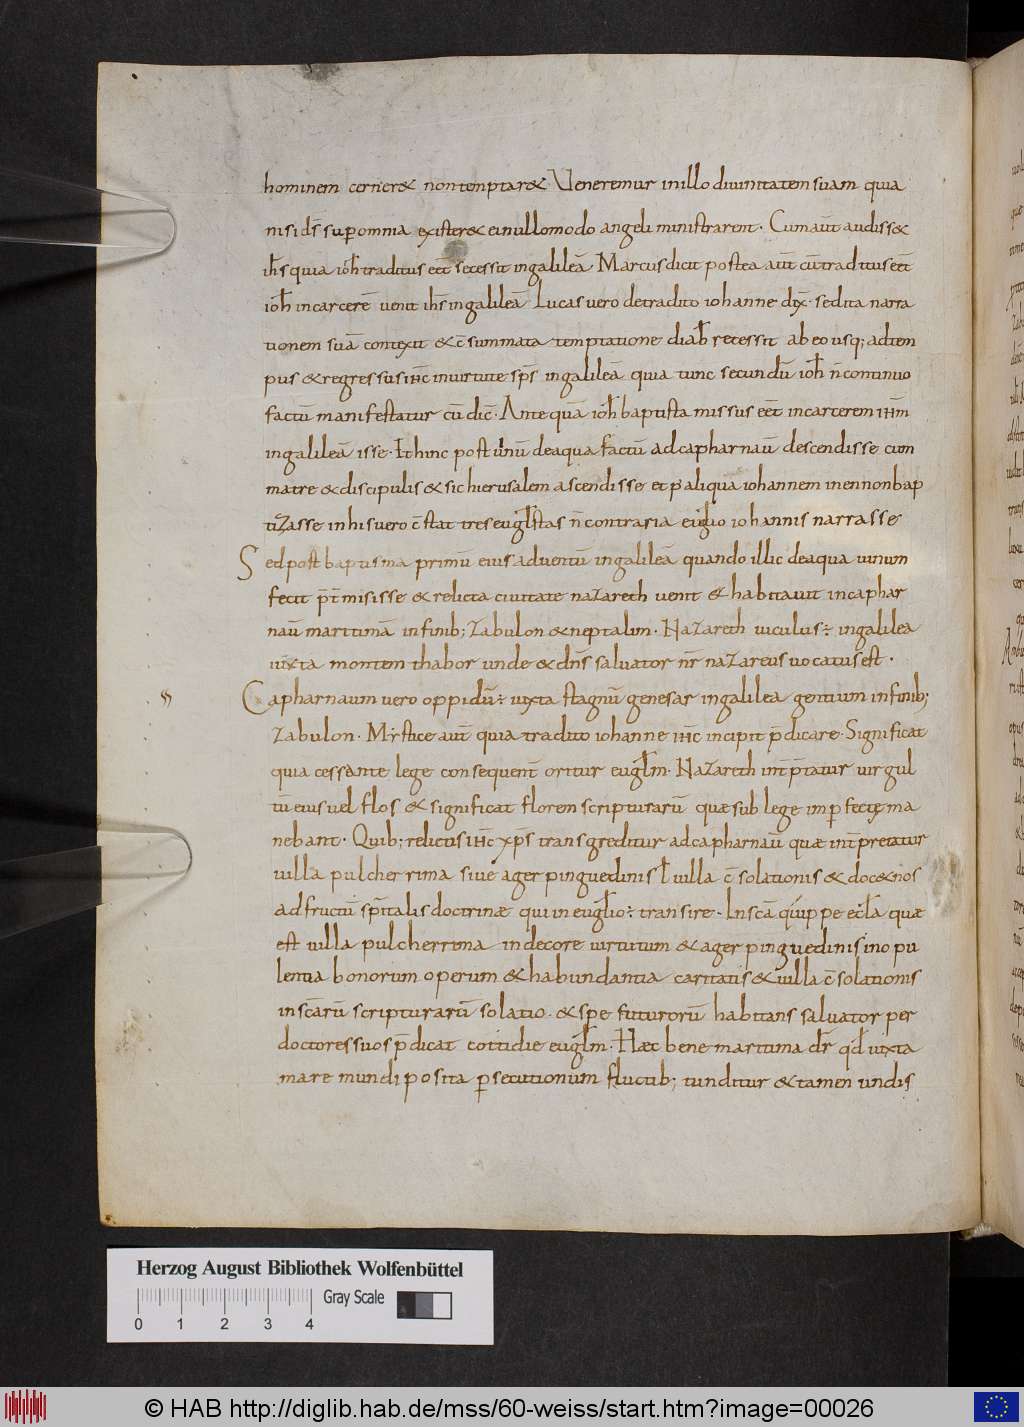 hominem cerner& non temptar& Veneremur in illo diuinitatem suam quia
nisi d̄s sup omnia exister& ei nullomodo angeli ministrarent · Cum aūt audiss&
ih̄s quia ioh̄ traditus eēt secessit in galileā Marcus dicit postea aūt cū traditus eēt
ioh̄ in carcerē uenit ih̄s in galileā Lucas uero de tradito iohanne dix̄ · sed ita narra
tionem suā contexit & c̄summata temptatione diab̄ recessit ab eo usq; ad tem
pus & regressus ih̄c in uirtute sp̄s in galileā quia tunc secundū ioh̄ n̄ continuo
factū manifestatur cū dic̄ · Ante quā ioh̄ baptista missus eēt in carcerem ih̄m
in galileā isse · Et hinc post uinū de aqua factū ad capharnaū descendisse cum
matre & discipulis & sic hierusalem ascendisse et p aliqua iohannem in ennon bap
tizasse in his uero c̄stat tres eugl̄stas n̄ contraria euglio iohannis narrasse
Sed post baptisma primū eius aduentū in galileā quando illic de aqua uinum
fecit p̄t misisse & relicta ciuitate nazareth uenit & habitauit in caphar
naū maritimā in finib; zabulon & neptalim · Nazareth uiculus ÷ in galilea
iuxta montem thabor unde & dn̄s saluator nr̄ nazareus uocatus est ·
Capharnaum uero oppidū ÷ iuxta stagnū genesar in galilea gentium in finib;
zabulon · Mystice aūt quia tradito iohanne ih̄c incipit p̄dicare · Significat
quia cessante lege consequent̄ oritur eugl̄m · Nazareth int̄p̄tatur uirgul
tū eius uel flos & significat florem scripturarū quae sub lege imperfectę ma
nebant · Quib; relictis ih̄c xp̄s transgreditur ad capharnaū quae int̄pretatur
uilla pulcherrima siue ager pinguedinis l̄ uilla c̄solationis & doc& nos
ad fructū sp̄italis doctrinae qui in eugl̄io ÷ transire · In sc̄a quippe eccl̄a quae
est uilla pulcherrima in decore uirtutum & ager pinguedinis in opu
lentia bonorum operum & habundantia caritatis & uilla c̄solationis
in sc̄arū scripturarū solatio · & spe futurorū habitans saluator per
doctores suos p̄dicat cottidie eugl̄m · Haec bene maritima dr̄ qd̄ iuxta
mare mundi posita p̱secutionum fluctib; tunditur & tamen undis
Herzog August Bibliothek Wolfenbüttel
Gray Scale
0 1 2 3 4
© HAB http://diglib.hab.de/mss/60-weiss/start.htm?image=00026